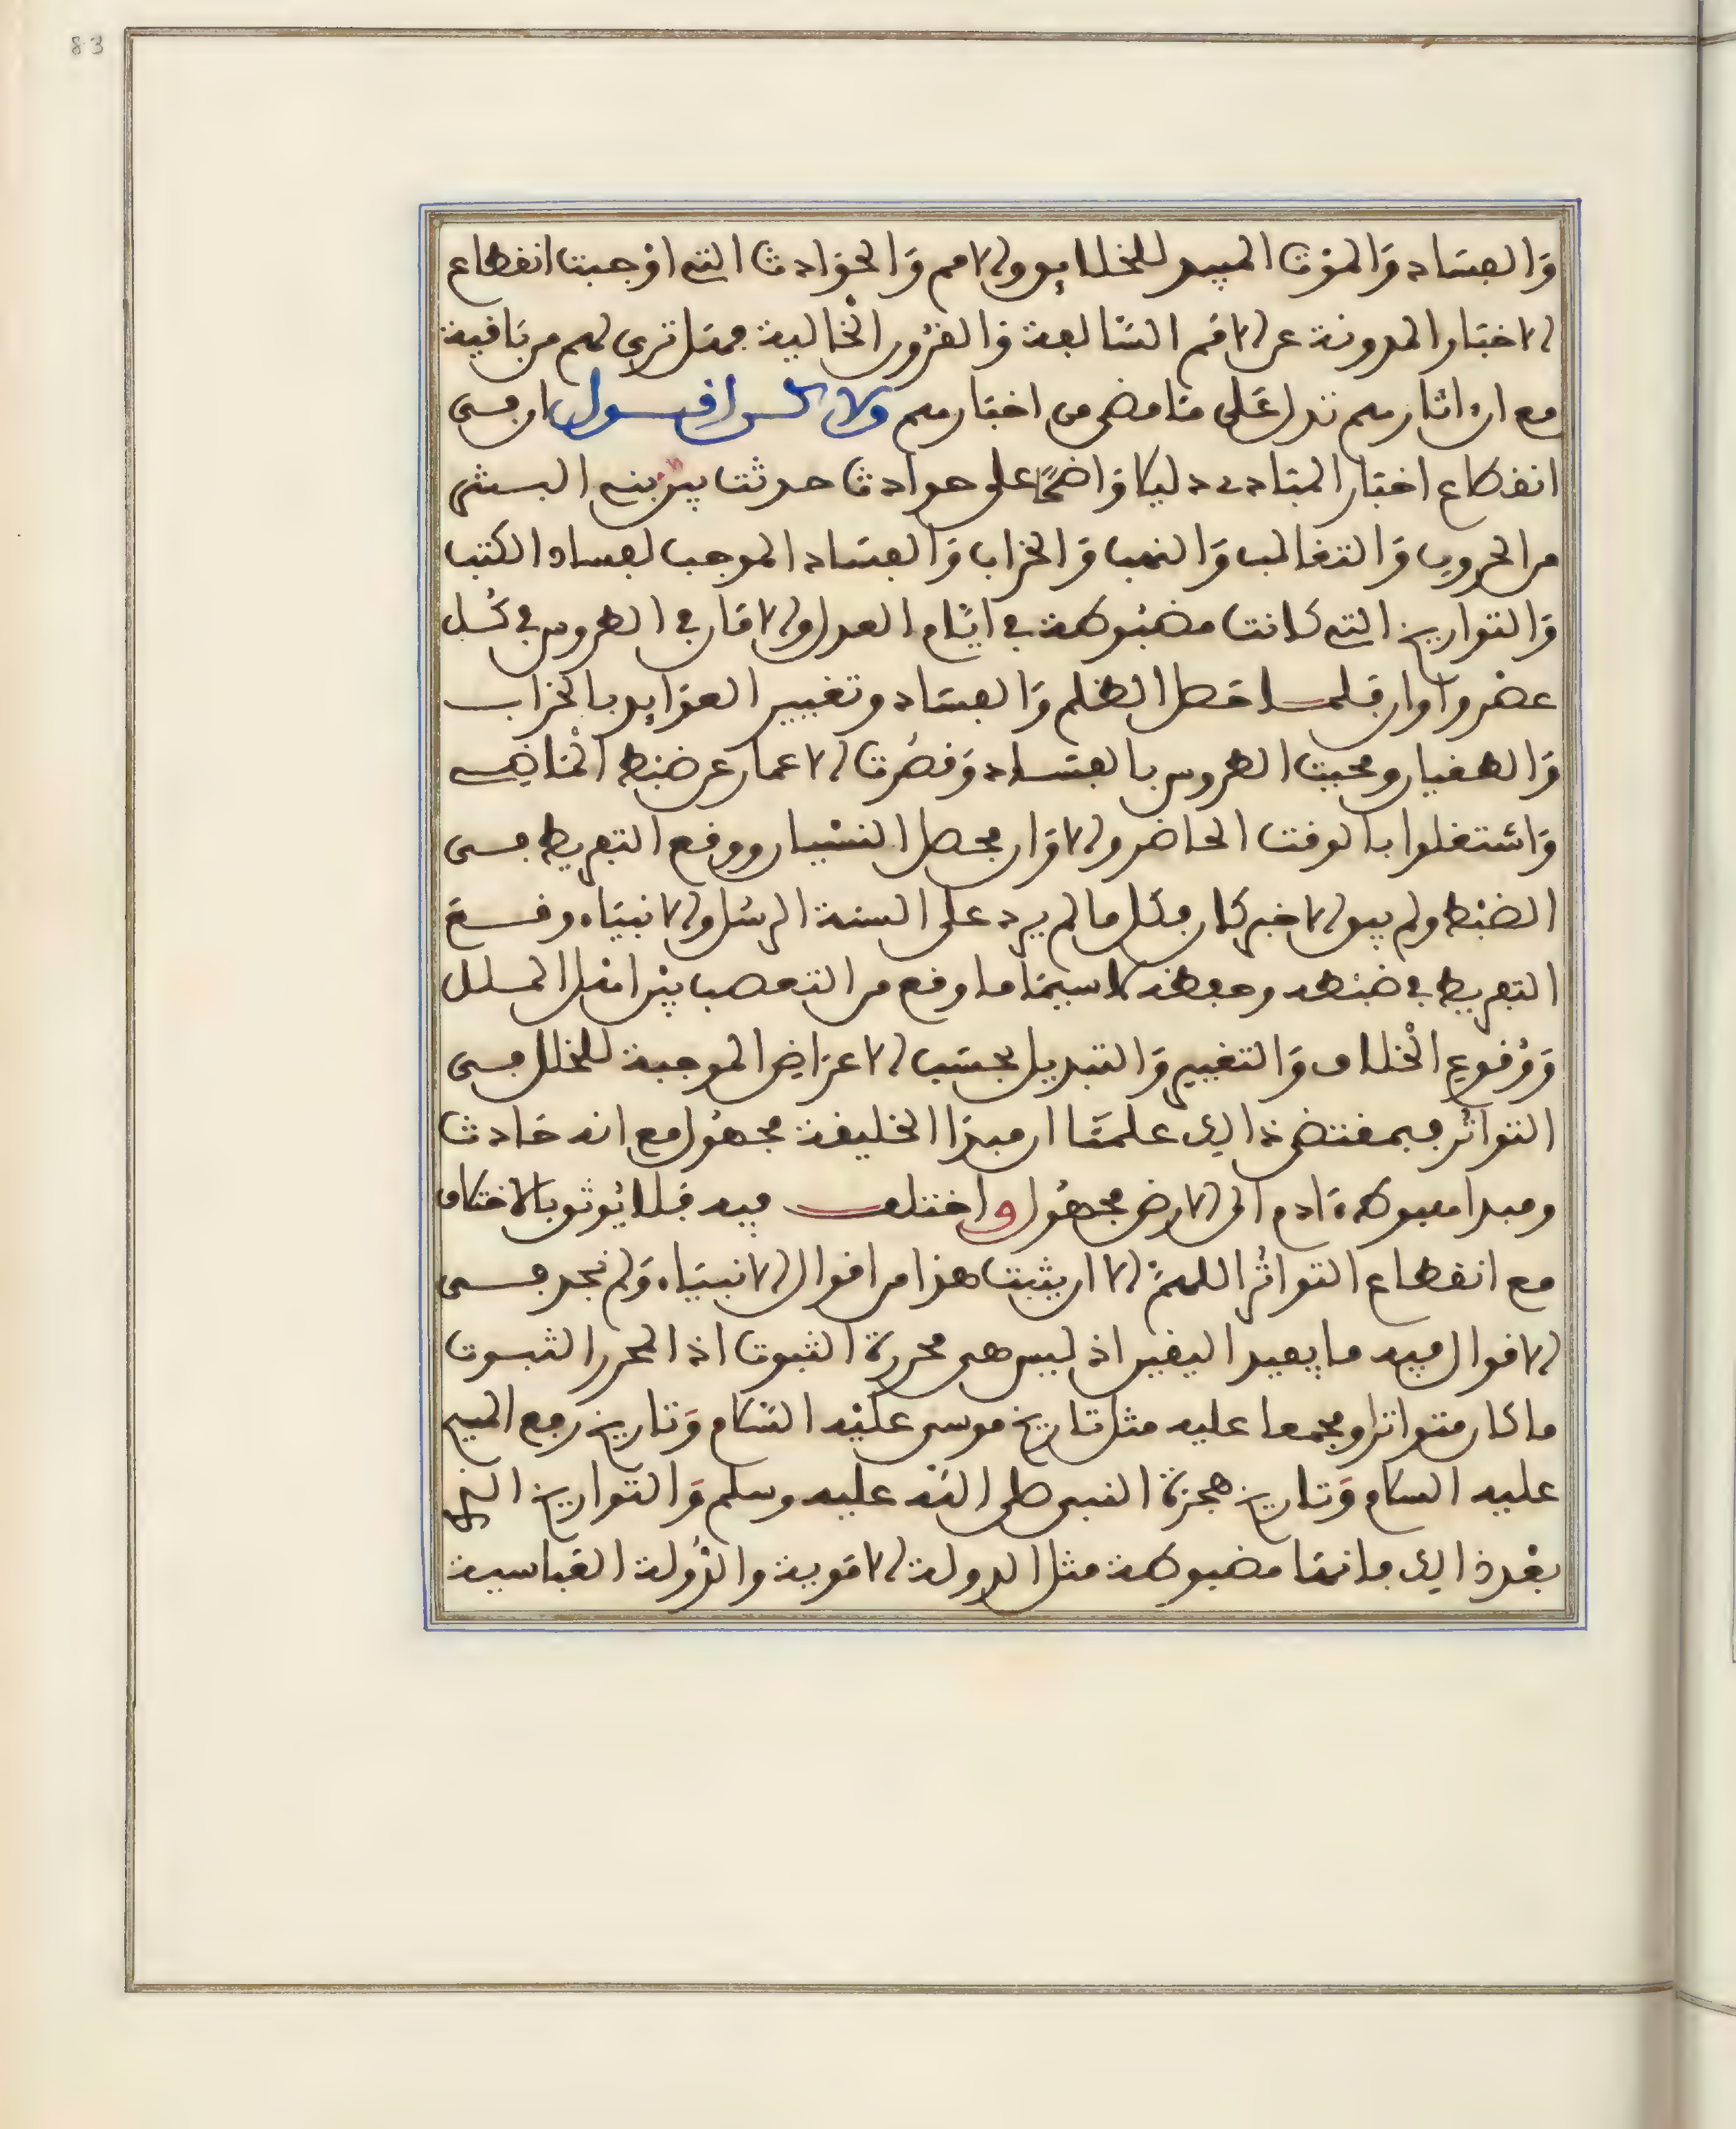 83
والفساد والموت المبيد للخلايق والامم والحوادث التي اوجبت انقطاع
الاخبار المدونة عن الامم السالفة والقرون الخالية فهل ترى لهم من باقية
مع ان اثارهم تدل على ما مضى من اخبارهم ولا كن اقول ان في
انقطاع اخبار المبادي دليلا واضحا على حوادث حدثت بين بني البشر
من الحروب والتغالب والنهب والخراب والفساد الموجب لفساد الكتب
والتواريخ التي كانت مضبوطة في ايام العدل والامان في الطروس في كل
عصر واوان فلما حصل الظلم والفساد وتغيير العوايد بالخراب
والطغيان ومحيت الطروس بالفساد وقصرت الاعمار عن ضبط الماضي
واشتغلوا بالوقت الحاضر والاوان فحصل النسيان ووقع التفريط في
الضبط ولم يبق الا خبر كان فكل ما لم يرد على السنة الرسل والانبياء وقع
التفريط في ضبطه وحفظه لا سيما ما وقع من التعصب بين اهل الملل
ووقوع الخلاف والتغيير والتبديل بحسب الاعراض الموجبة للخلل في
التواتر فبمقتضى ذالك علمنا ان مبدا الخليفة مجهول مع انه حادث
ومبدا هبوط ءادم الى الارض مجهول واختلف فيه فلا يوثق بالاختلاف
مع انقطاع التواتر اللهم الا ان يثبت هذا من اقوال الانبياء ولم نجد في
الاقوال فيه ما يفيد اليقين اذ ليس هي محررة الثبوت اذ المحرر الثبوت
ما كان متواترا ومجمعا عليه مثل تاريخ موسى عليه السلام وتاريخ رفع المسيح
عليه السلام وتاريخ هجرة النبي صلى الله عليه وسلم والتواريخ التي
بعد ذالك فانها مضبوطة مثل الدولة الاموية والدولة العباسية